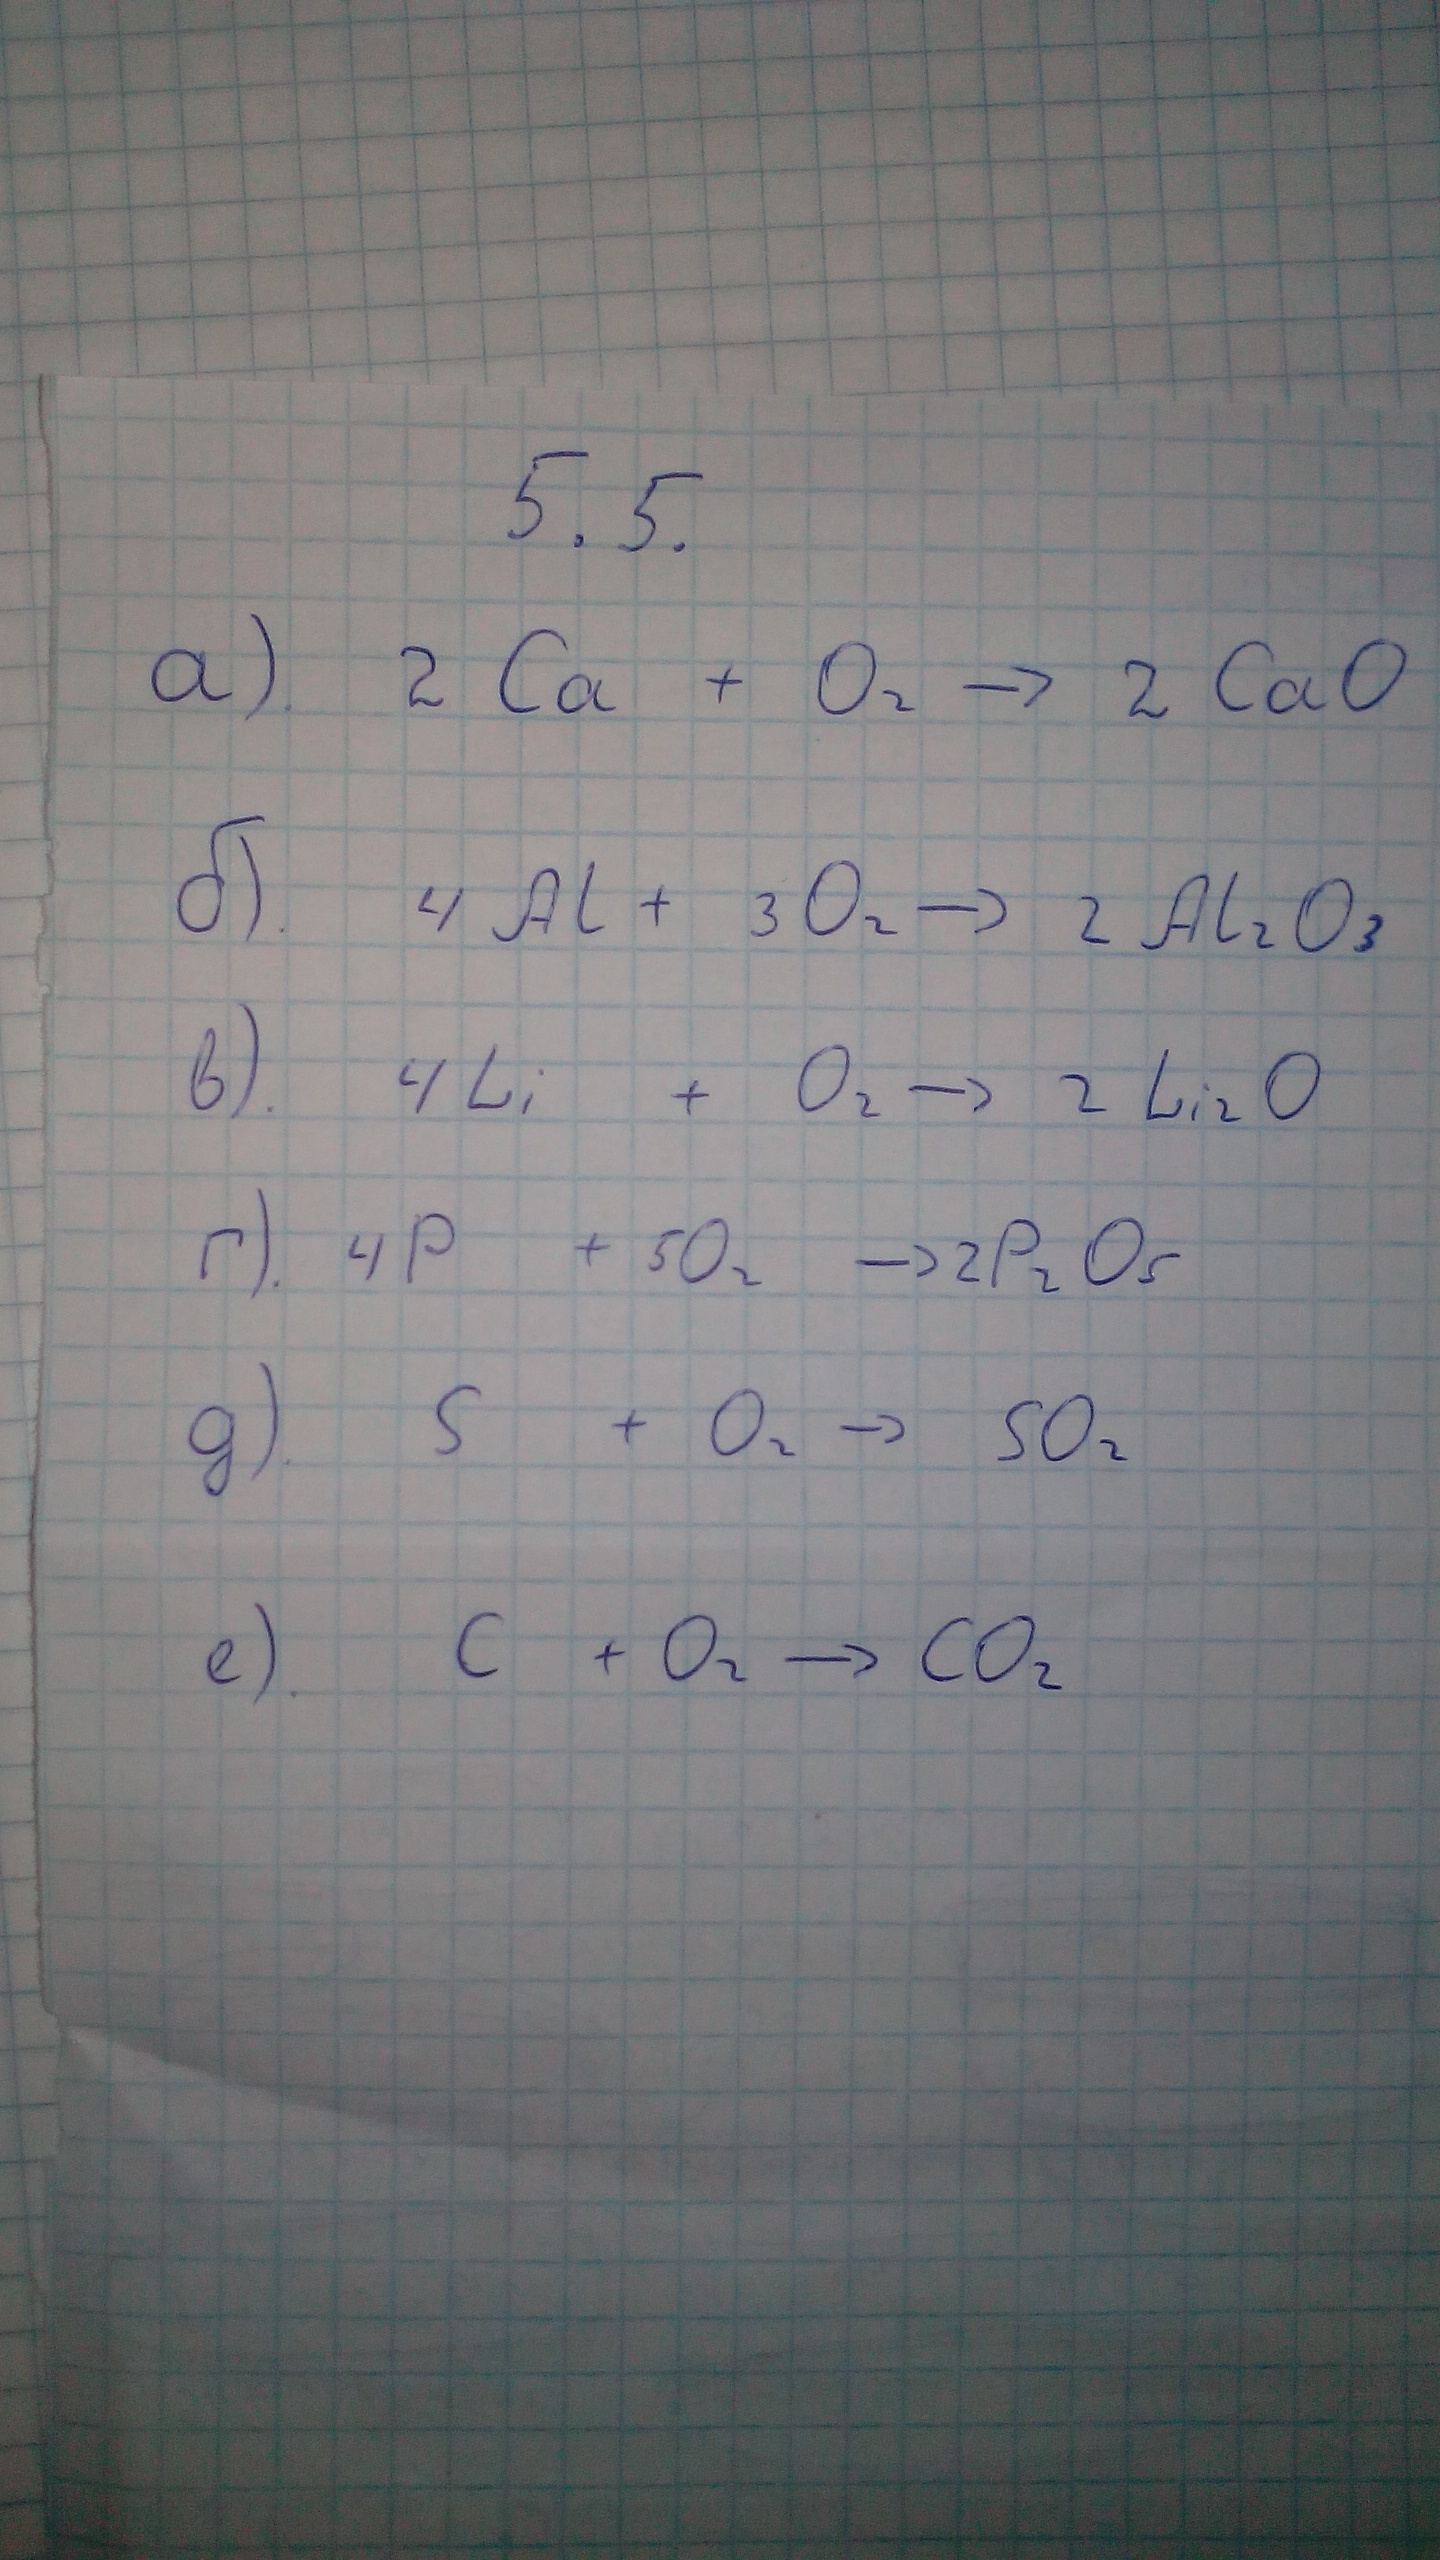 5.5.
а). 2 Ca + O₂ → 2 CaO
б). 4 Al + 3O₂ → 2 Al₂O₃
в). 4Li + O₂ → 2 Li₂O
г). 4P + 5O₂ → 2P₂O₅
д). S + O₂ → SO₂
е). C + O₂ → CO₂